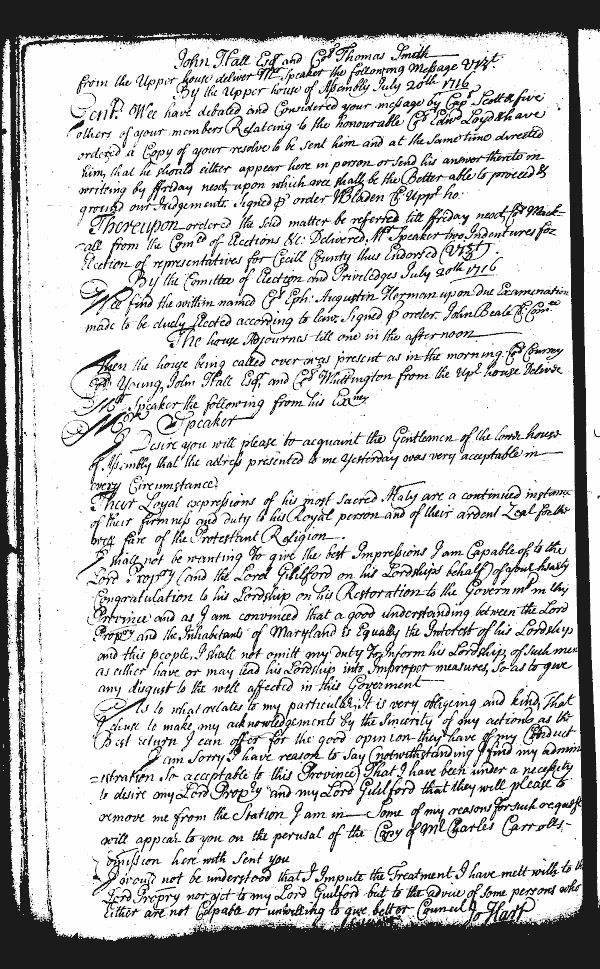 John Hall Esqr and Col Thomas Smith
from the Upper house deliver Mr Speaker the following Message Vizt.
By the Upper house of Assembly July 20th 1716
Gent. Wee have debated and Considered your message by Capt Scott & five
others of your members Relateing to the honourable Col Edwd Loyd & have
ordered a Copy of your resolve to be sent him and at the same time directed
him, that he should either appear here in person or send his answer thereto in
writeing by ffriday next, upon which wee shall be the Better able to proceed &
ground our Judgements. Signed p order WBladen Cl Uppr ho:
Thereupon ordered the said matter be referred till ffriday next, Col Mack-
-all from the Comee of Elections &c: Delivered Mr Speaker two Indentures for
Election of representatives for Cecill County thus Endorsed (Vizt)
By the Comittee of Election and Priviledges July 20th 1716
Wee find the within named Col Eph: Augustin Herman upon due Examination
made to be duely Elected according to law. Signed p order. John Beale Cl Comee
The house Adjournes till one in the afternoon
Then the house being called over was present as in the morning. Col Coursey
Col Young, John Hall Esqr and Col Whittington from the Uppr house Deliver
Mr Speaker the following from his Excy
Mr Speaker
I Desire you will please to acquaint the Gentlemen of the lower house
of Assembly that the adress presented to me Yesterday was very acceptable in
every Circumstance.
Their Loyal expressions of his most Sacred Maty are a continued instance
of their firmness and duty to his Royal person and of their ardent Zeal for the
well fare of the Protestant Religion
I shall not be wanting to give the best Impressions I am Capable of, to the
Lord Propry (and the Lord Guilford on his Lordships behalf) of your hearty
Congratulation to his Lordship on his Restoration to the Governmt in this
Province and as I am convinced that a good understanding between the Lord
Propry and the Inhabitants of Maryland is Equally the Interest of his Lordship
and this people, I shall not omitt my duty to Inform his Lordship, of such men
as either have or may lead his Lordship into Improper measures, So as to give
any disgust to the well affected in this Goverment
As to what relates to my particular, it is very obligeing and kind, That
I chuse to make my acknowledgements by the Sincerity of my actions as the
Best return I can offer for the good opinion they have of my Conduct
I am Sorry I have reason to Say (notwithstanding I find my admin
=istration So acceptable to this Province) That I have been under a necessity
to desire my Lord Propry and my Lord Guilford that they will please to
remove me from the Station I am in Some of my reasons for such request
will appear to you on the perusal of the Copy of Mr Charles Carrolls
comission here with Sent you
I would not be understood that I Impute the Treatment I have mett with to the
Lord Propry nor yet to my Lord Guilford but to the advice of some persons who
Either are not Capable or unwilling to give better Council Jo Hart